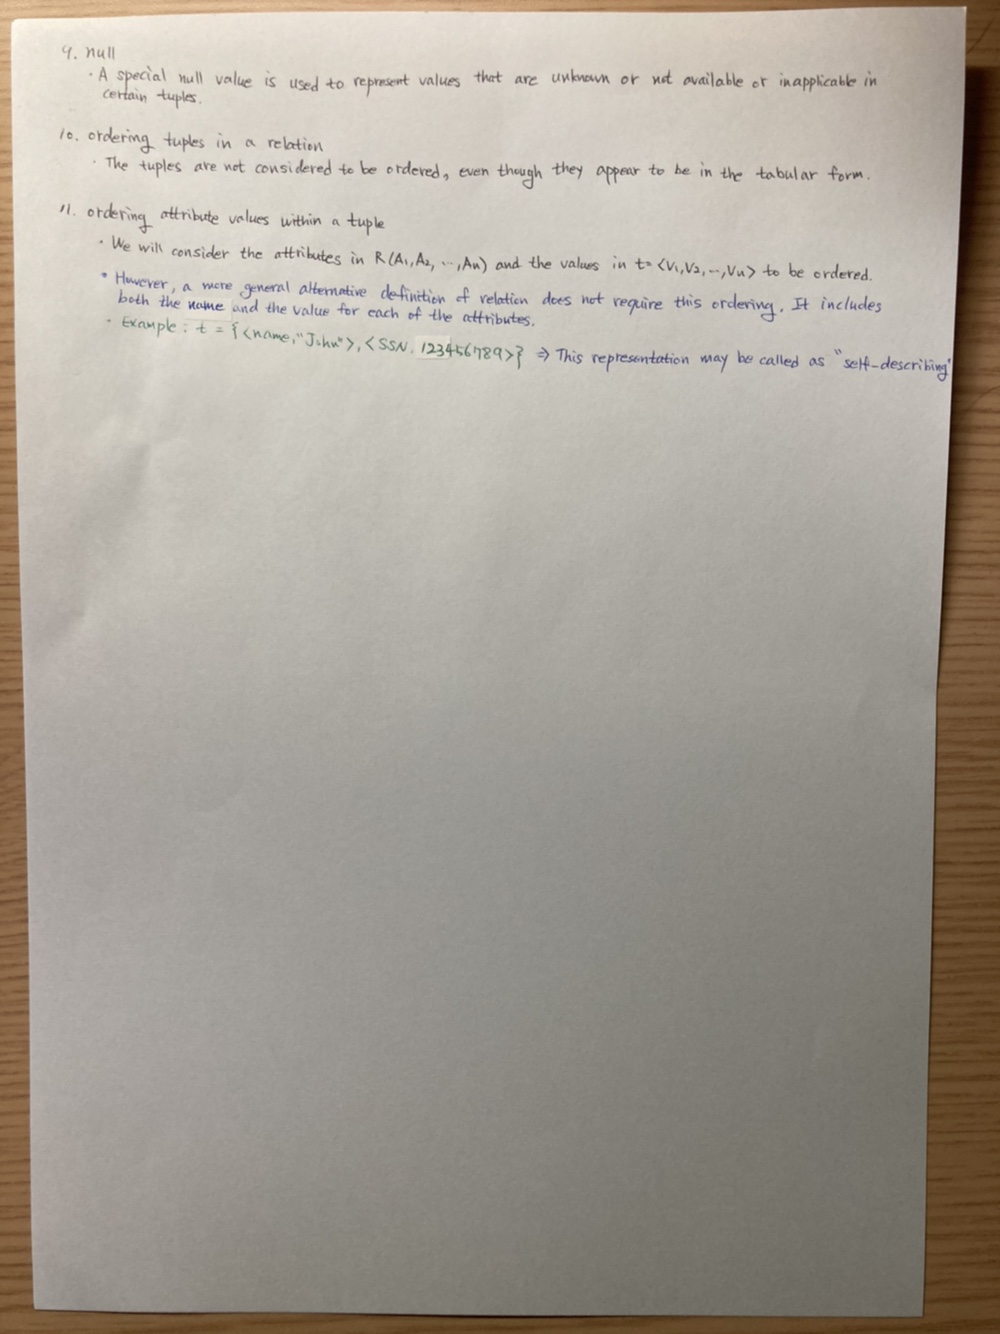 9. null
· A special null value is used to represent values that are unknown or not available or inapplicable in
certain tuples.
10. ordering tuples in a relation
· The tuples are not considered to be ordered, even though they appear to be in the tabular form.
11. ordering attribute values within a tuple
· We will consider the attributes in R(A1, A2, ..., An) and the values in t= <V1, V2, ..., Vn> to be ordered.
· However, a more general alternative definition of relation does not require this ordering. It includes
both the name and the value for each of the attributes.
· Example : t = {<name, "John">, <SSN, 123456789>} ⇒ This representation may be called as "self-describing"